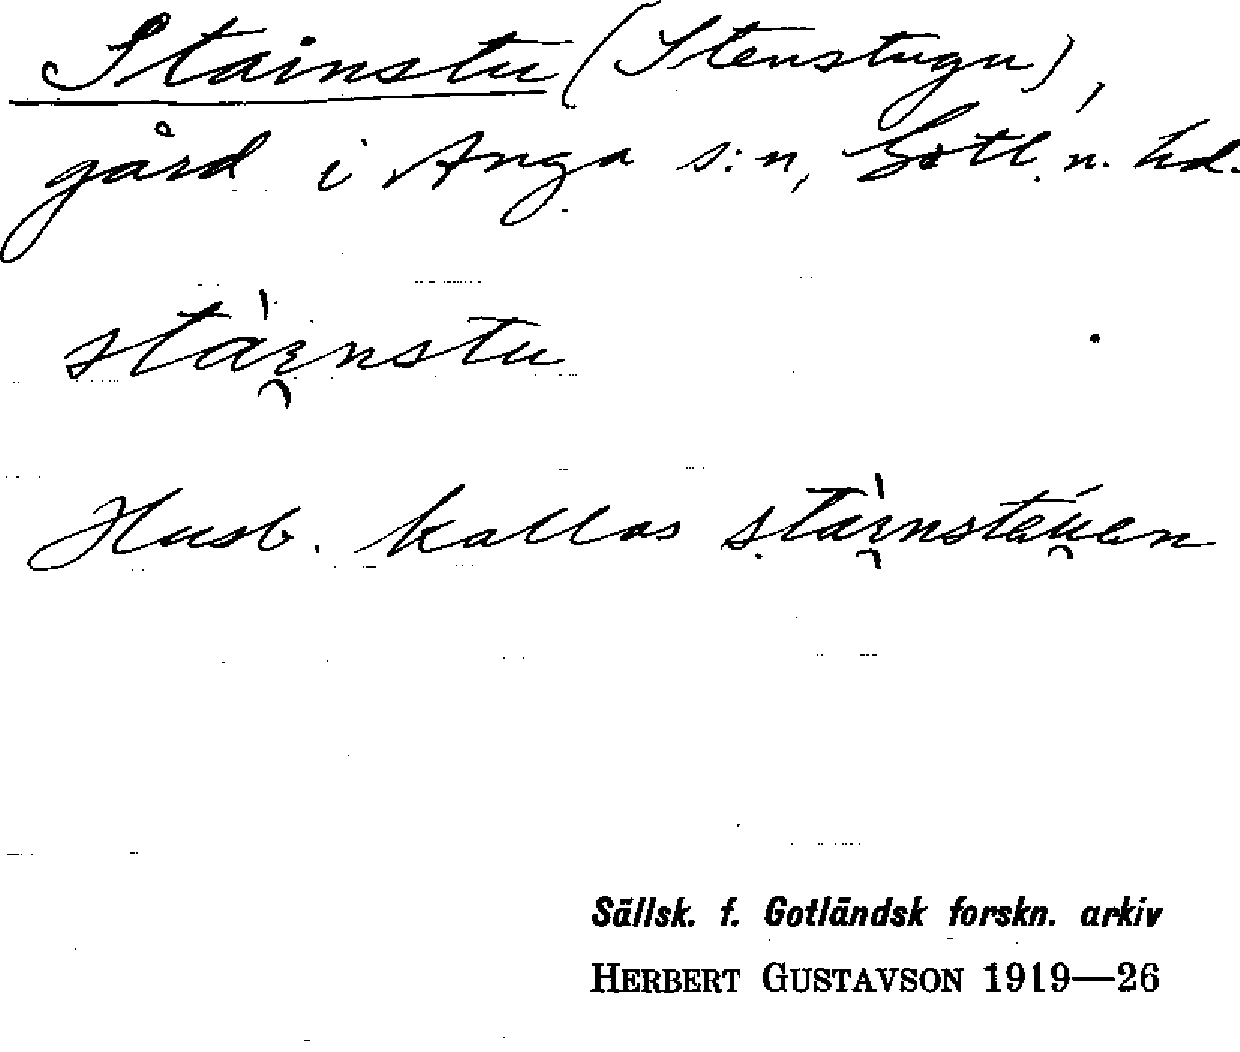 Stainstu (Stenstugu),
gård i Anga s:n, Gotl. n. hd.
stáı̯nstu
Husb. kallas
Sällsk. f. Gotländsk forskn. arkiv
HERBERT GUSTAVSON 1919—26